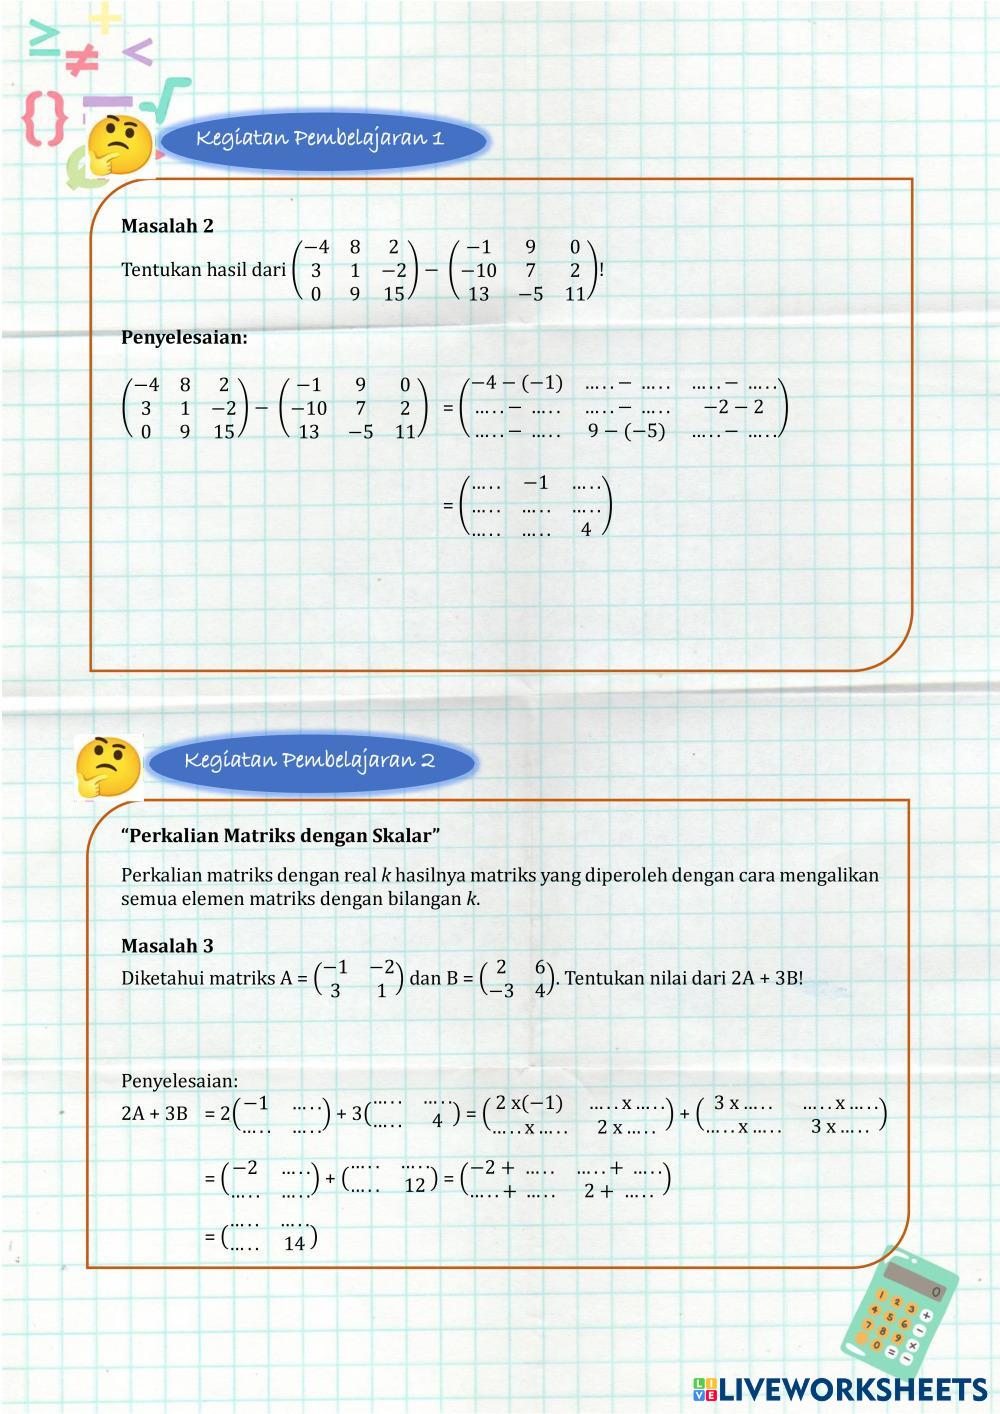 Kegiatan Pembelajaran 1
Masalah 2
Tentukan hasil dari (−4 8 2 / 3 1 −2 / 0 9 15) − (−1 9 0 / −10 7 2 / 13 −5 11)!
Penyelesaian:
(−4 8 2 / 3 1 −2 / 0 9 15) − (−1 9 0 / −10 7 2 / 13 −5 11) = (−4 − (−1) ..... − ..... ..... − ..... / ..... − ..... ..... − ..... −2 − 2 / ..... − ..... 9 − (−5) ..... − .....)
= (..... −1 ..... / ..... ..... ..... / ..... ..... 4)
Kegiatan Pembelajaran 2
“Perkalian Matriks dengan Skalar”
Perkalian matriks dengan real k hasilnya matriks yang diperoleh dengan cara mengalikan
semua elemen matriks dengan bilangan k.
Masalah 3
Diketahui matriks A = (−1 −2 / 3 1) dan B = (2 6 / −3 4). Tentukan nilai dari 2A + 3B!
Penyelesaian:
2A + 3B = 2(−1 ..... / ..... .....) + 3(..... ..... / ..... 4) = (2 x(−1) ..... x ..... / ..... x ..... 2 x .....) + (3 x ..... ..... x ..... / ..... x ..... 3 x .....)
= (−2 ..... / ..... .....) + (..... ..... / ..... 12) = (−2 + ..... ..... + ..... / ..... + ..... 2 + .....)
= (..... ..... / ..... 14)
0
1 2 3 +
4 5 6 −
7 8 9 x
0 = −
LIVE LIVEWORKSHEETS